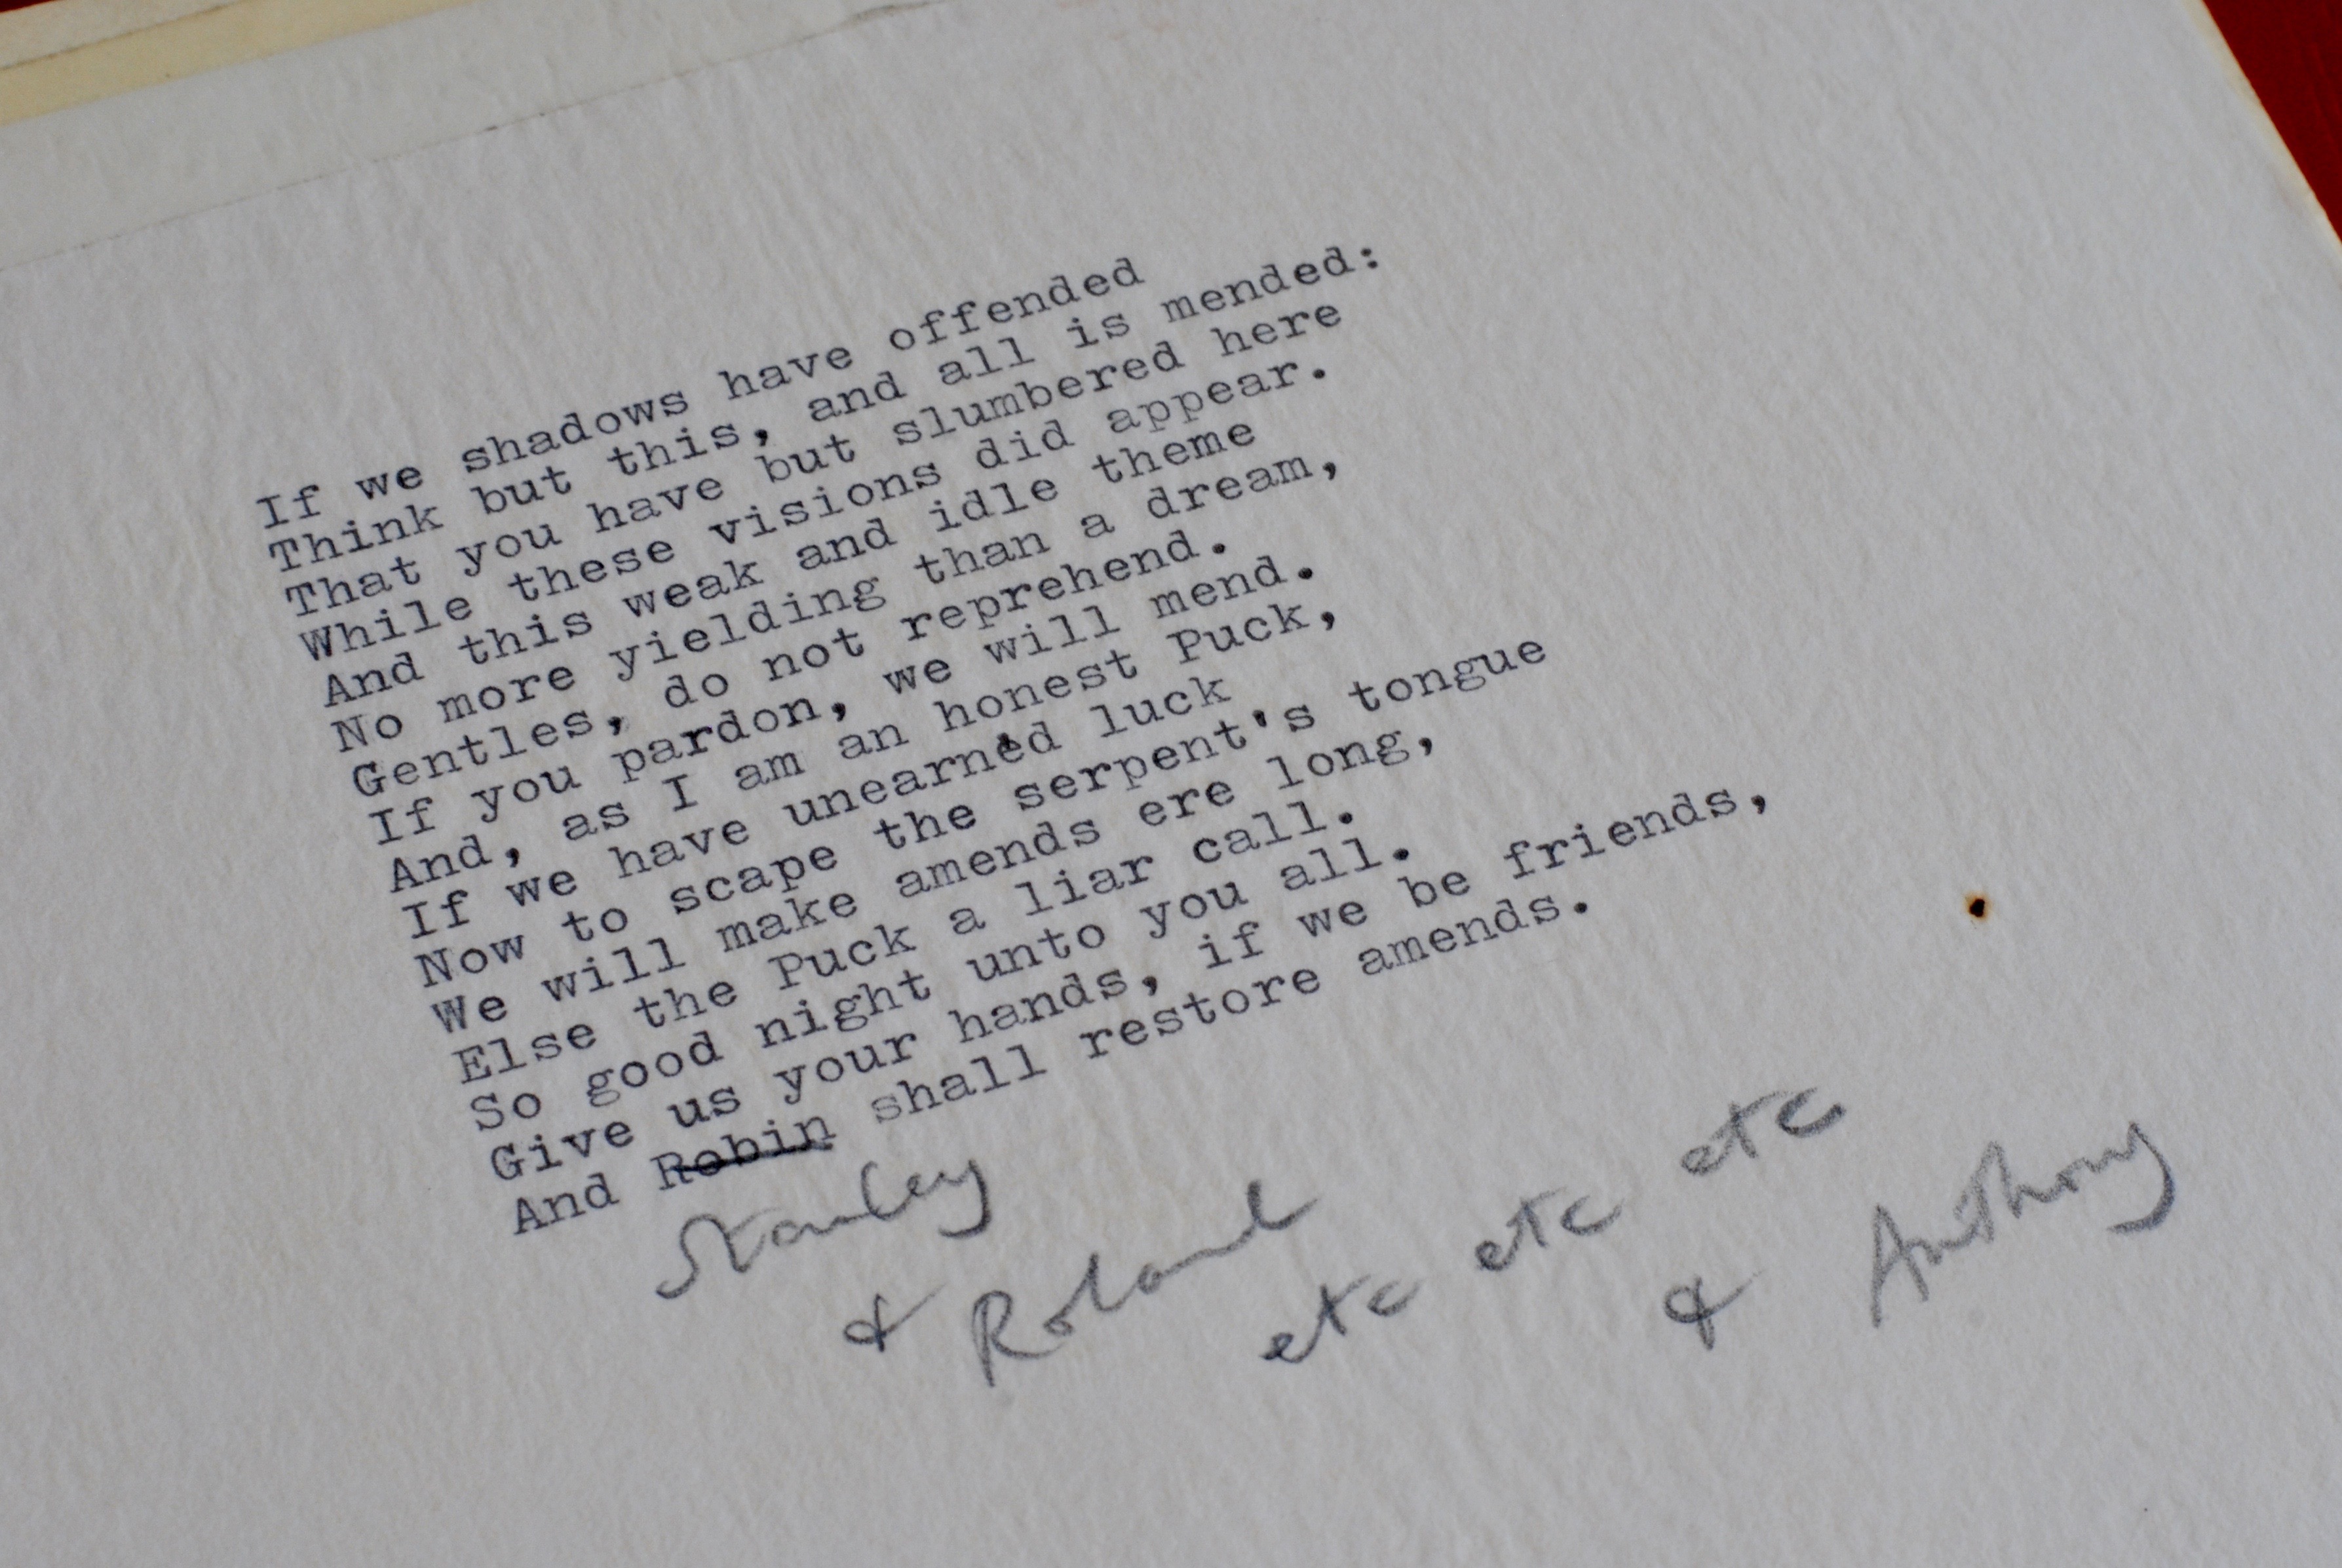 If we shadows have offended
Think but this, and all is mended:
That you have but slumbered here
While these visions did appear.
And this weak and idle theme
No more yielding than a dream,
Gentles, do not reprehend.
If you pardon, we will mend.
And, as I am an honest Puck,
If we have unearned luck
Now to scape the serpent's tongue
We will make amends ere long,
Else the Puck a liar call.
So good night unto you all.
Give us your hands, if we be friends,
And Robin shall restore amends.
Stanley
& Roland etc etc etc
& Anthony